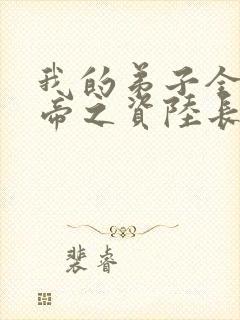 我的弟子全
帝之資陸長
裴睿